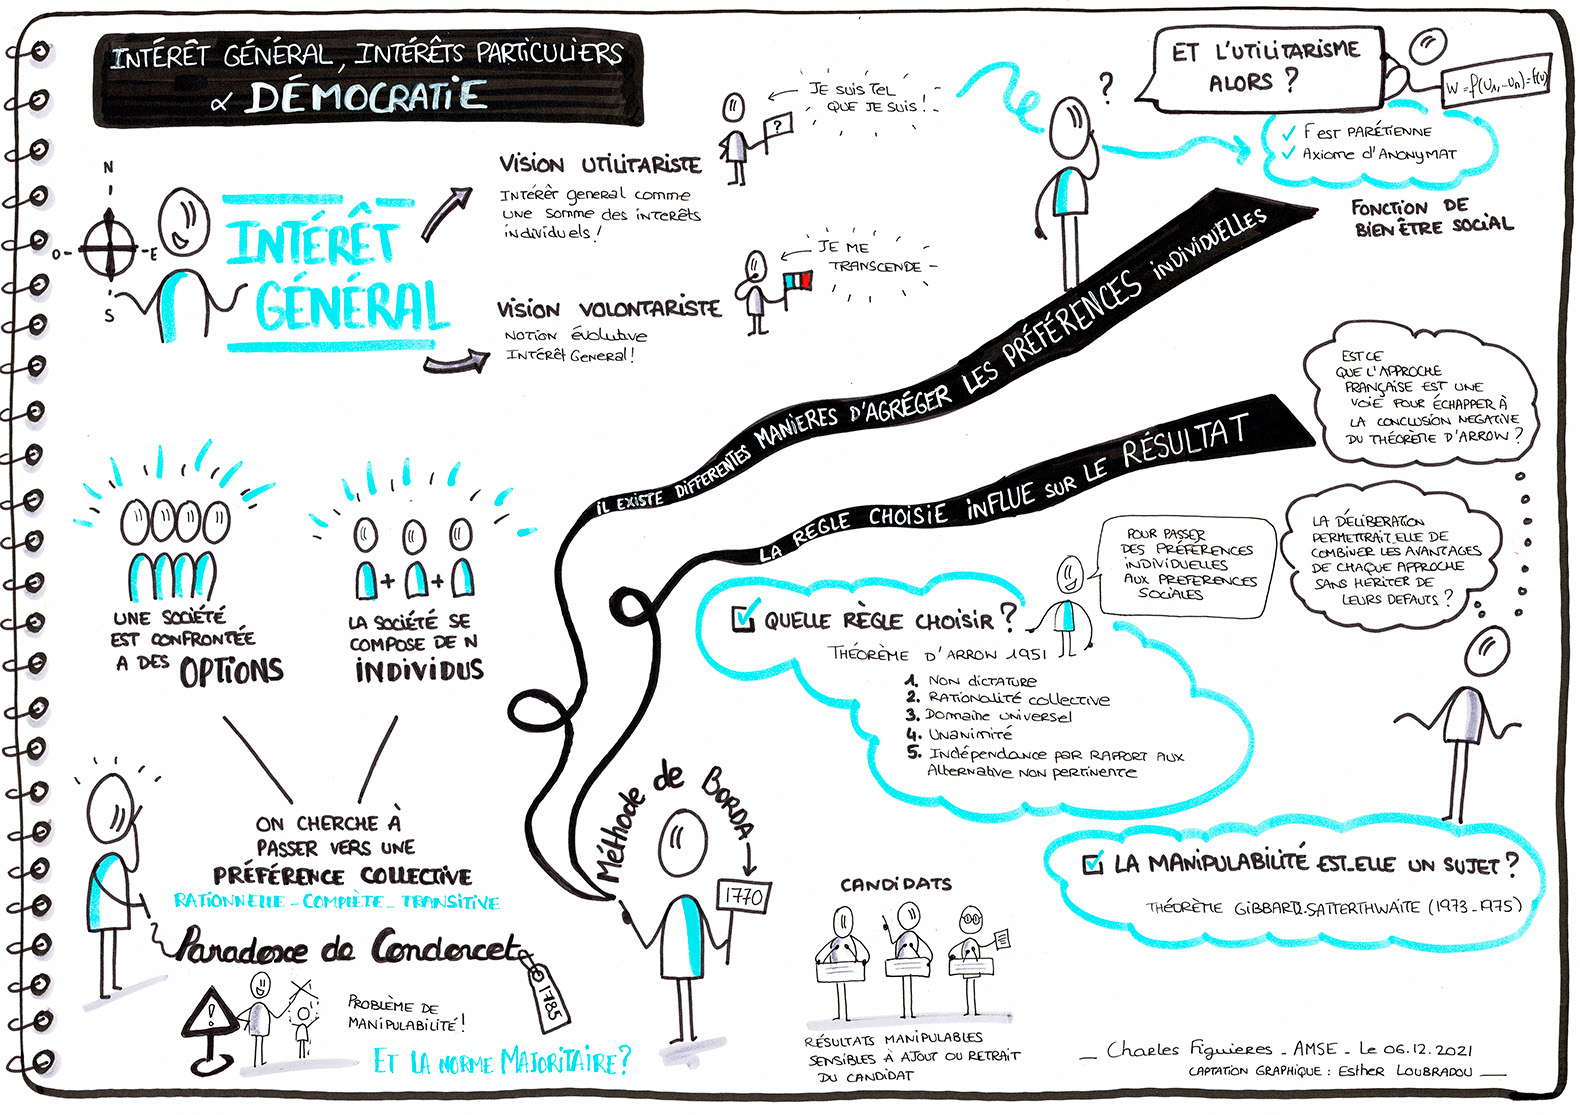 INTÉRÊT GÉNÉRAL, INTÉRÊTS PARTICULIERS
& DÉMOCRATIE
N
O
E
S
INTÉRÊT
GÉNÉRAL
VISION UTILITARISTE
INTÉRÊT GENERAL COMME
UNE SOMME DES INTERÊTS
INDIVIDUELS !
?
JE SUIS TEL
QUE JE SUIS !
VISION VOLONTARISTE
NOTION ÉVOLUTIVE
INTÉRÊT GENERAL !
JE ME
TRANSCENDE
?
ET L'UTILITARISME
ALORS ?
W = f(U1,...Un) = f(U)
F EST PARÉTIENNE
AXIOME D'ANONYMAT
FONCTION DE
BIEN ÊTRE SOCIAL
IL EXISTE DIFFERENTES MANIERES D'AGRÉGER LES PRÉFÉRENCES INDIVIDUELLES
LA REGLE CHOISIE INFLUE SUR LE RÉSULTAT
EST CE
QUE L'APPROCHE
FRANÇAISE EST UNE
VOIE POUR ÉCHAPPER À
LA CONCLUSION NEGATIVE
DU THÉORÈME D'ARROW ?
LA DÉLIBERATION
PERMETTRAIT-ELLE DE
COMBINER LES AVANTAGES
DE CHAQUE APPROCHE
SANS HERITER DE
LEURS DEFAUTS ?
UNE SOCIÉTÉ
EST CONFRONTÉE
A DES OPTIONS
+ +
LA SOCIÉTÉ SE
COMPOSE DE N
INDIVIDUS
POUR PASSER
DES PRÉFÉRENCES
INDIVIDUELLES
AUX PREFERENCES
SOCIALES
QUELLE RÈGLE CHOISIR ?
THÉORÈME D'ARROW 1951
1. NON DICTATURE
2. RATIONALITÉ COLLECTIVE
3. DOMAINE UNIVERSEL
4. UNANIMITÉ
5. INDÉPENDANCE PAR RAPPORT AUX
ALTERNATIVE NON PERTINENTE
ON CHERCHE À
PASSER VERS UNE
PRÉFÉRENCE COLLECTIVE
RATIONNELLE - COMPLÈTE - TRANSITIVE
Paradoxe de Condorcet
1785
!
PROBLÈME DE
MANIPULABILITÉ !
ET LA NORME MAJORITAIRE ?
Méthode de BORDA
1770
CANDIDATS
RÉSULTATS MANIPULABLES
SENSIBLES À AJOUT OU RETRAIT
DU CANDIDAT
LA MANIPULABILITÉ EST-ELLE UN SUJET ?
THÉORÈME GIBBARD-SATTERTHWAITE (1973-1975)
_ Charles Figuieres - AMSE - Le 06.12.2021
CAPTATION GRAPHIQUE : Esther LOUBRADOU _